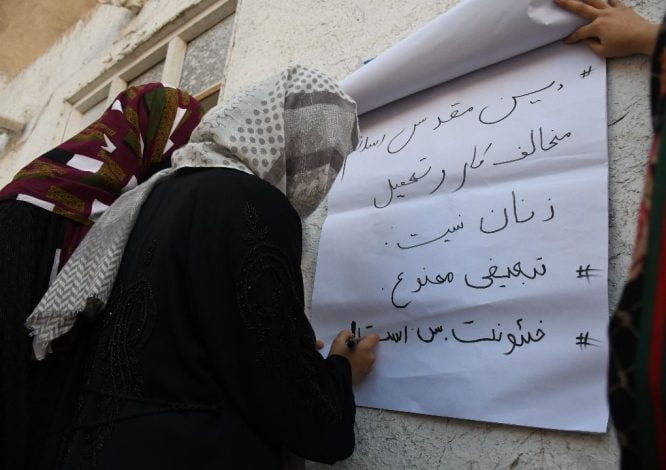 # دین مقدس اسلام
مخالف کار و تحصیل
زنان نیست.
# تبعیض ممنوع.
# خشونت بس است!